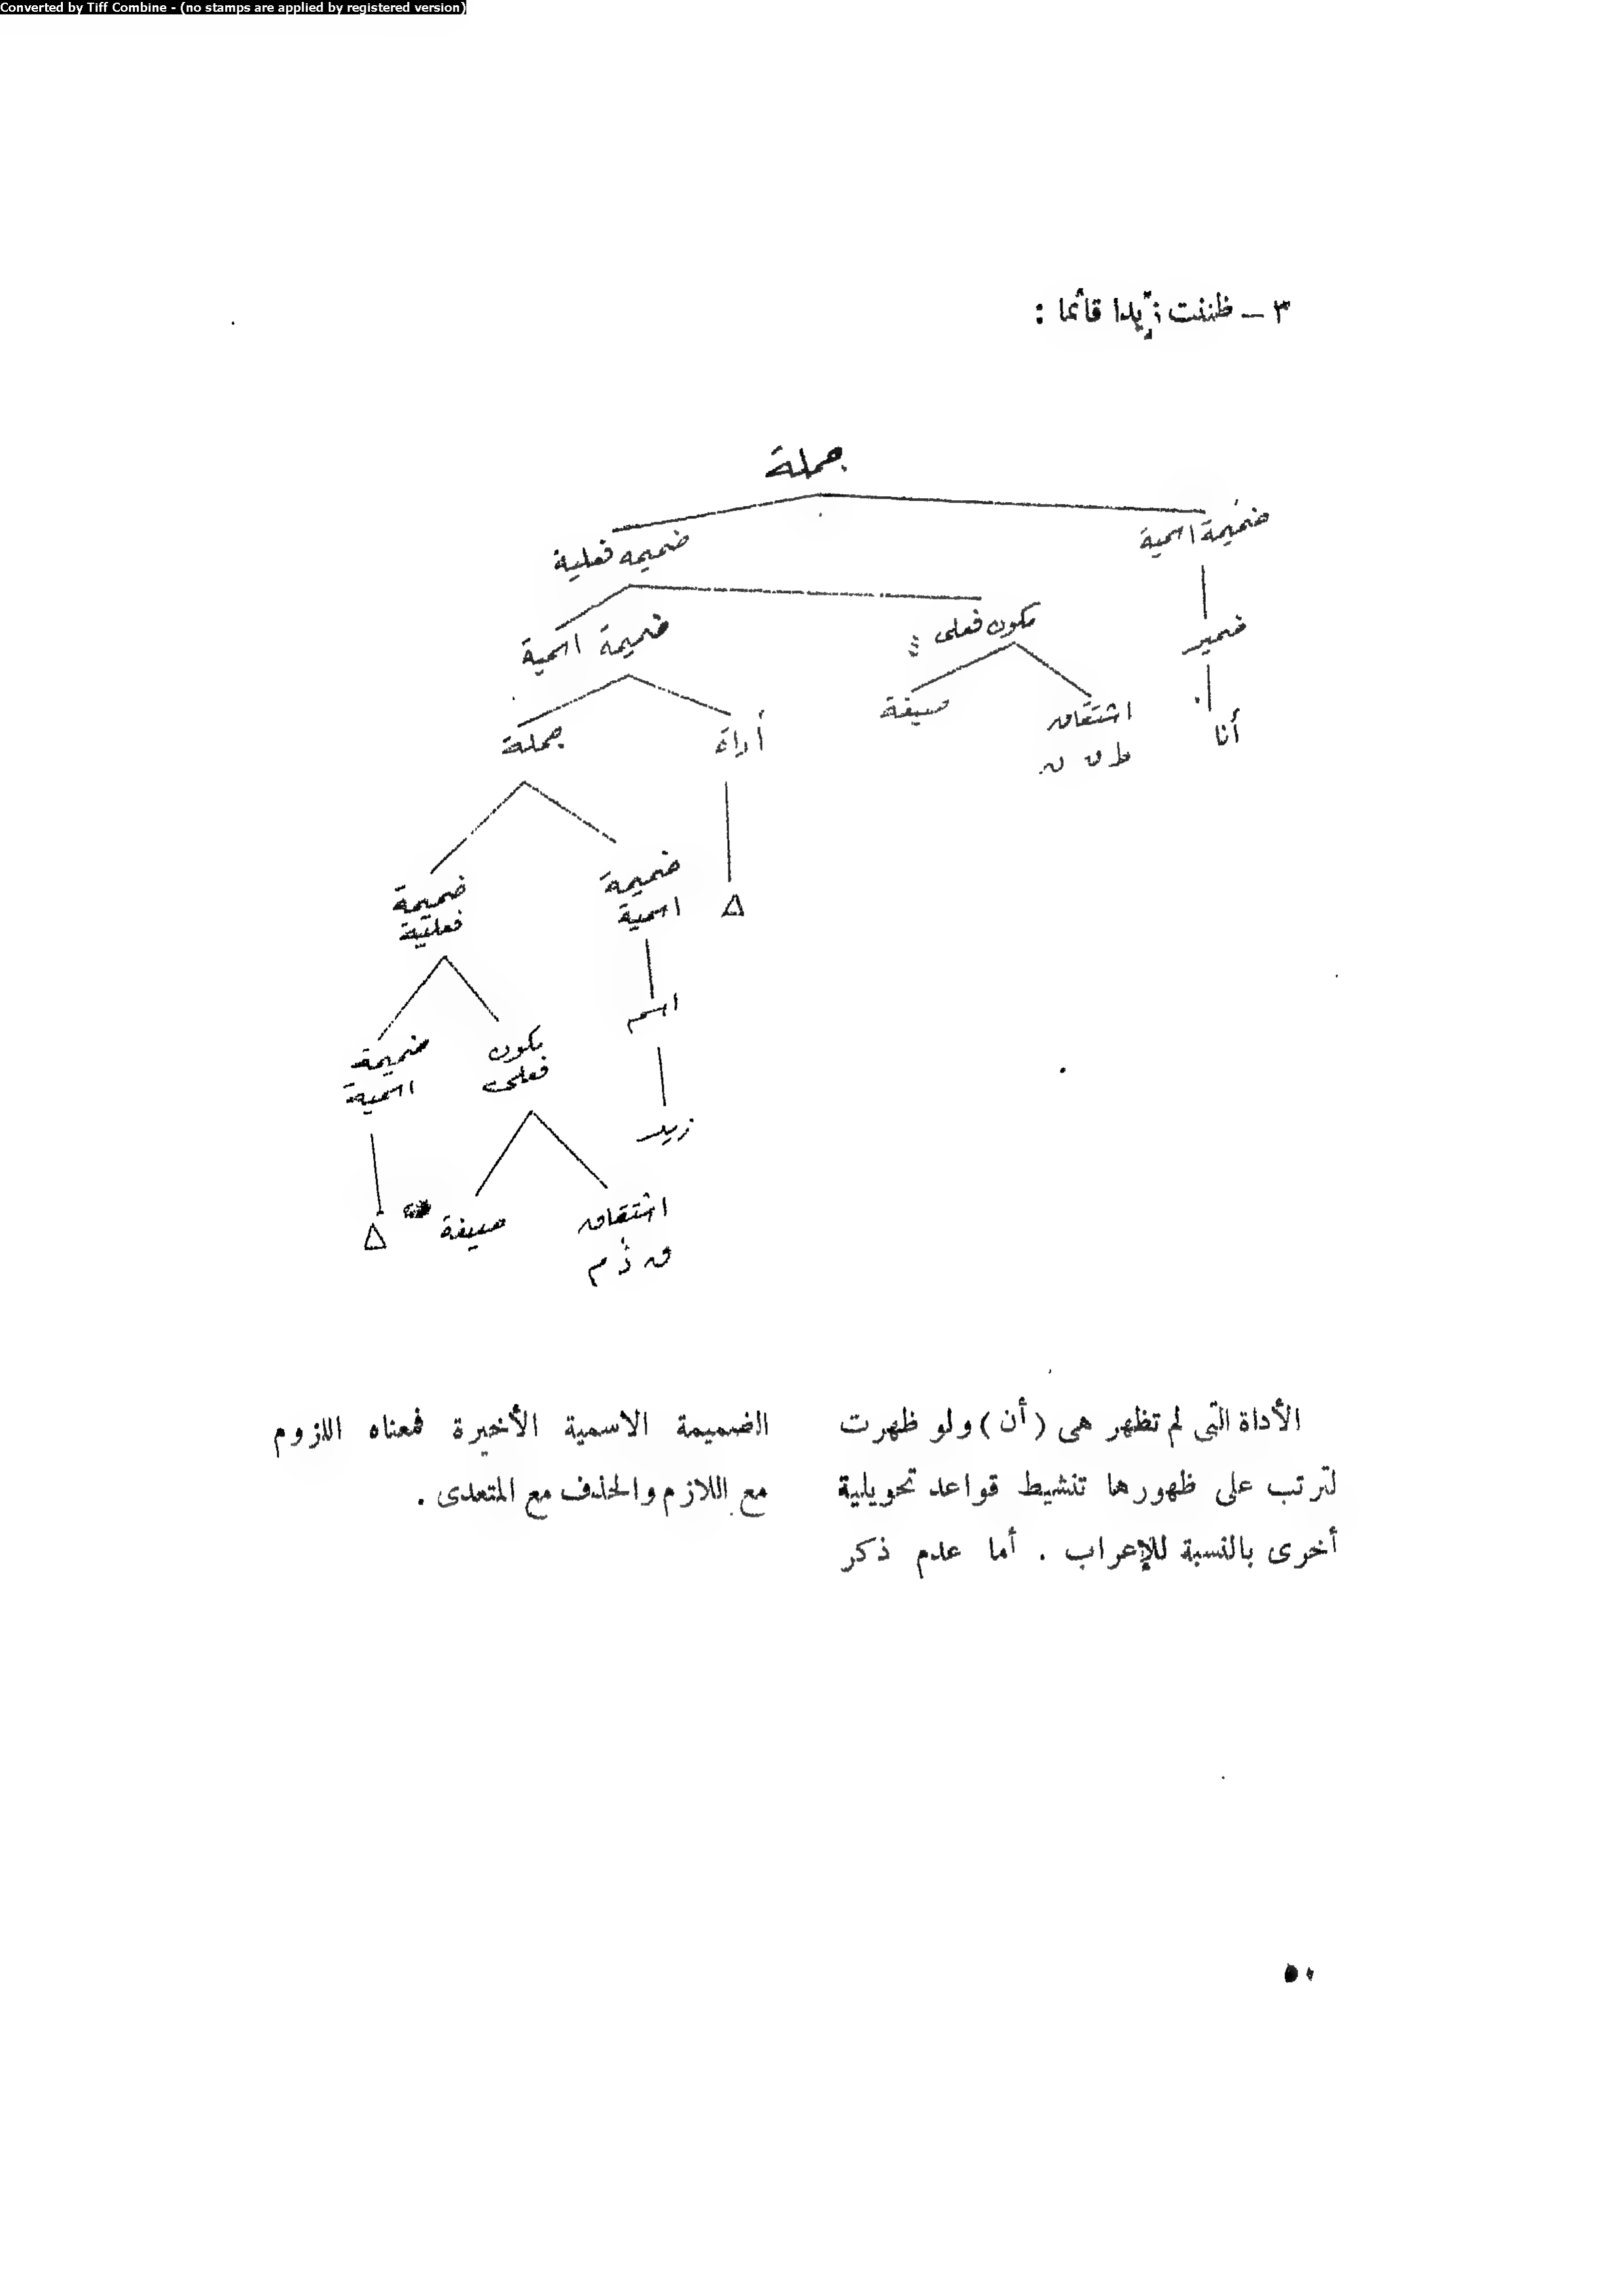 Converted by Tiff Combine - (no stamps are applied by registered version)
٣ – ظننت زيدا قائما :
جملة
ضميمة اسمية
ضميمه فعلية
ضمير
مكون فعلى
ضميمة اسمية
أنا
اشتقاق
صيغة
أداة
جملة
Δ
ضميمة
اسمية
ضميمة
فعلية
اسم
مكون
فعلى
ضميمة
اسمية
زيد
اشتقاق
صيغة
Δ
الأداة التى لم تظهر هى (أن) ولو ظهرت
لترتب على ظهورها تنشيط قواعد تحويلية
أخرى بالنسبة للإعراب . أما عدم ذكر
الضميمة الاسمية الأخيرة فمعناه اللزوم
مع اللازم والحذف مع المتعدى .
٥٠